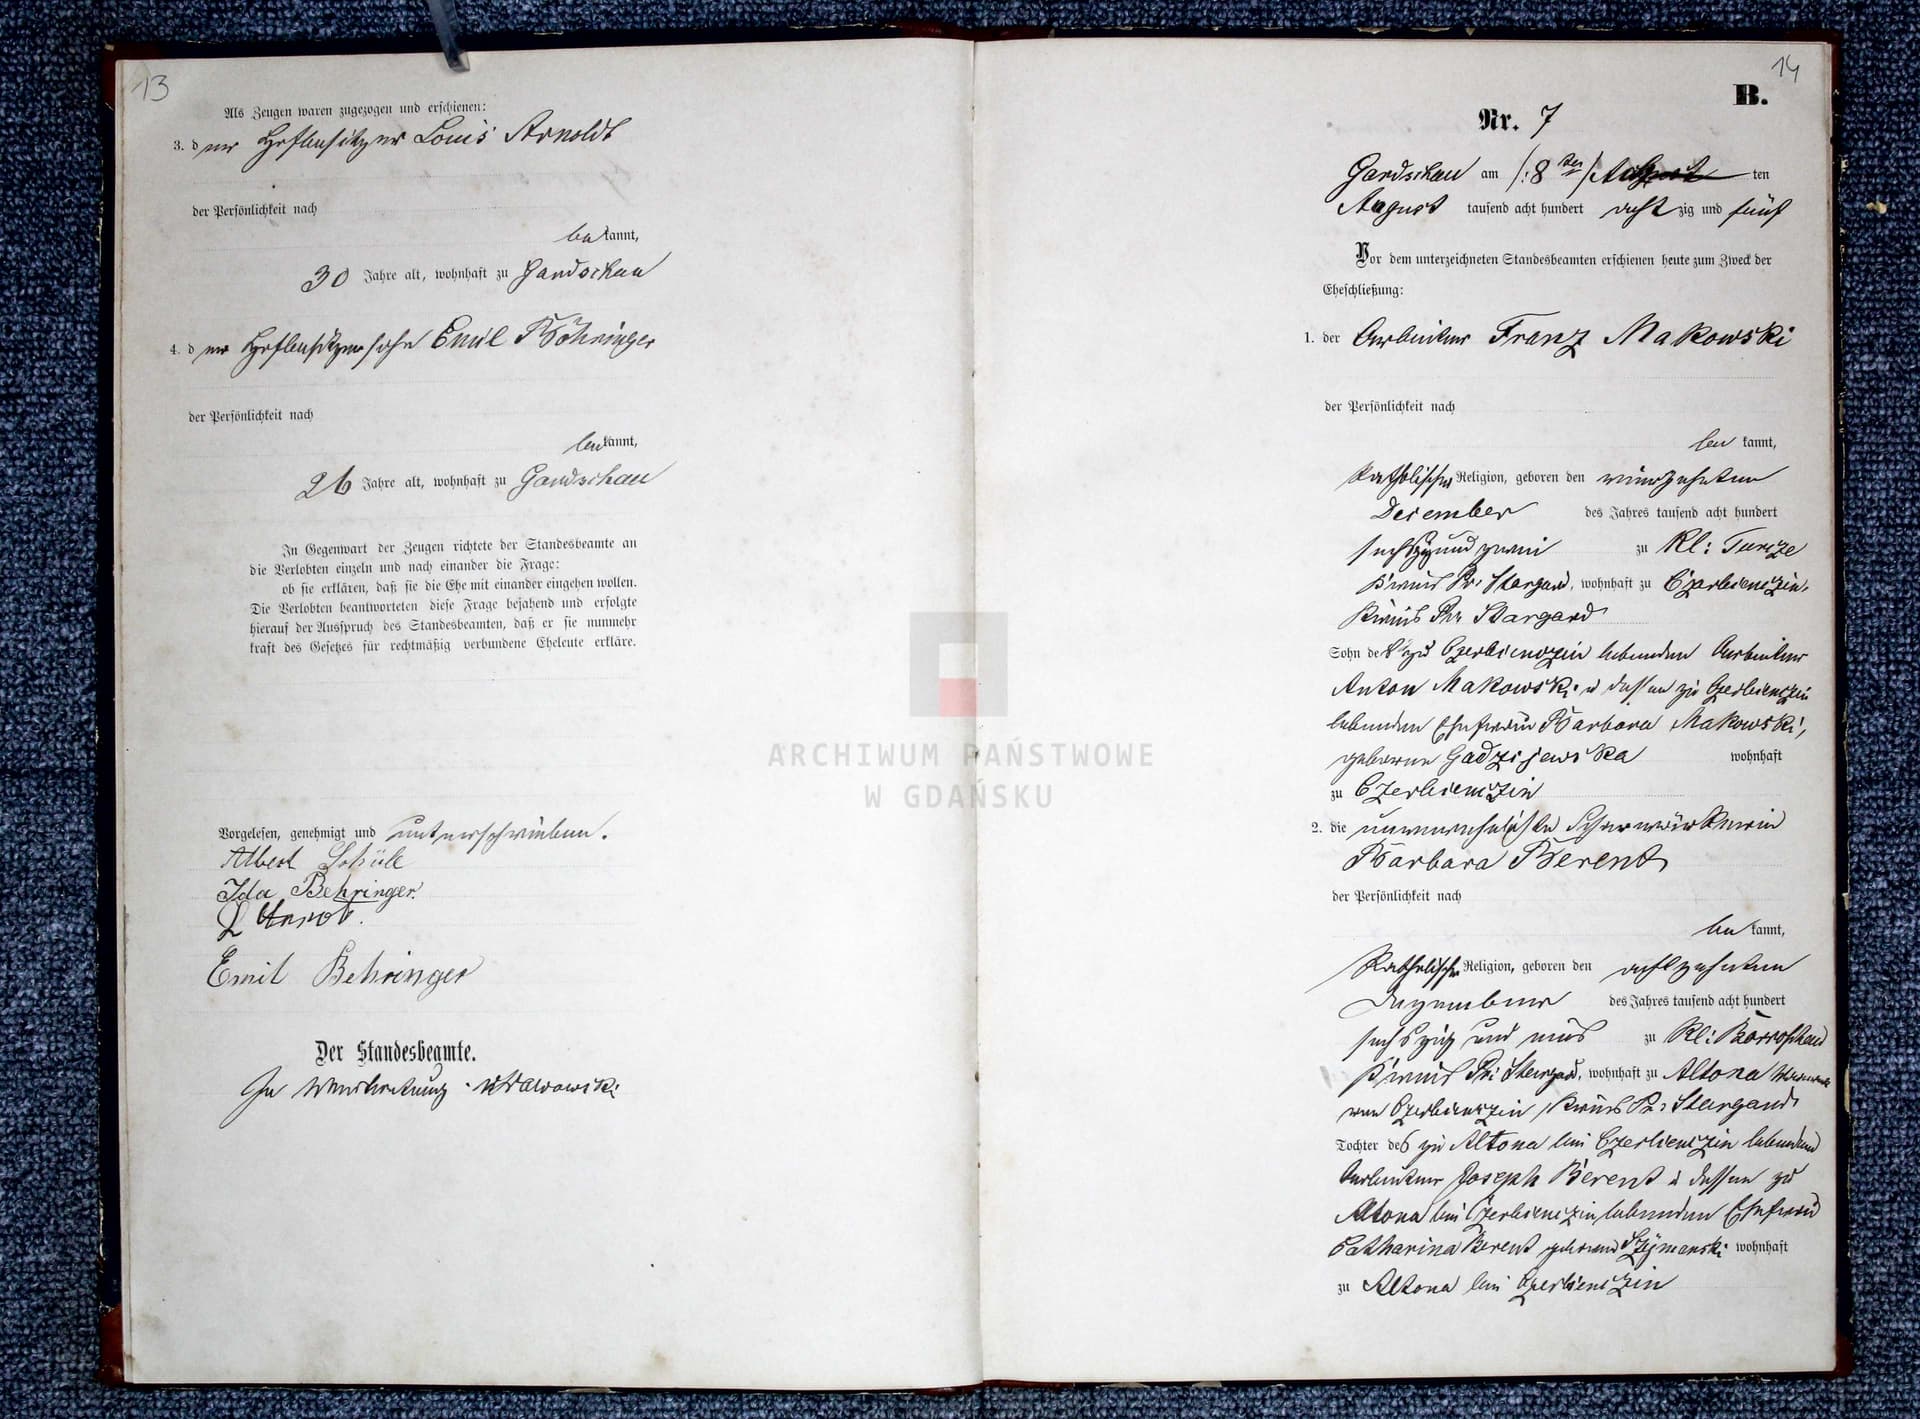 13
Als Zeugen waren zugezogen und erschienen:
3. der Hofbesitzer Louis Arnoldt
der Persönlichkeit nach
be kannt,
30 Jahre alt, wohnhaft zu Gardschau
4. d er Hofbesitzersohn Emil Böhringer
der Persönlichkeit nach
be kannt,
26 Jahre alt, wohnhaft zu Gardschau
In Gegenwart der Zeugen richtete der Standesbeamte an
die Verlobten einzeln und nach einander die Frage:
ob sie erklären, daß sie die Ehe mit einander eingehen wollen.
Die Verlobten beantworteten diese Frage bejahend und erfolgte
hierauf der Ausspruch des Standesbeamten, daß er sie nunmehr
kraft des Gesetzes für rechtmäßig verbundene Eheleute erkläre.
Vorgelesen, genehmigt und unterschrieben.
Albert Schüle
Ida Behringer.
L
Emil Behringer
Der Standesbeamte.
In Vertretung
14
B.
Nr. 7
Gardschau am /:8 ten /: August ten
August tausend acht hundert acht zig und fünf
Vor dem unterzeichneten Standesbeamten erschienen heute zum Zweck der
Eheschließung:
1. der Arbeiter Franz Makowski
der Persönlichkeit nach
be kannt,
katholischer Religion, geboren den vierzehnten
December des Jahres tausend acht hundert
sechszig und zwei zu Kl: Turcze
Kreis Pr: Stargard, wohnhaft zu Czerbienczin,
Kreis Pr: Stargard
Sohn des zu Czerbienczin lebenden Arbeiter
Anton Makowski u dessen zu Czerbienczin
lebenden Ehefrau Barbara Makowski,
geborene Gadzijewska wohnhaft
zu Czerbienczin
2. die unverehelichte
Barbara Berent
der Persönlichkeit nach
be kannt,
katholischer Religion, geboren den achtzehnten
Dezember des Jahres tausend acht hundert
sechszig und eins zu Kl: Borroschau
Kreis Pr: Stargard, wohnhaft zu Altona
von Czerbienczin, Kreis Pr: Stargard
Tochter des zu Altona bei Czerbienczin lebenden
Arbeiter Joseph Berent u dessen zu
Altona bei Czerbienczin lebenden Ehefrau
Catharina Berent geborene Szymanski wohnhaft
zu Altona bei Czerbienczin
ARCHIWUM PAŃSTWOWE
W GDAŃSKU